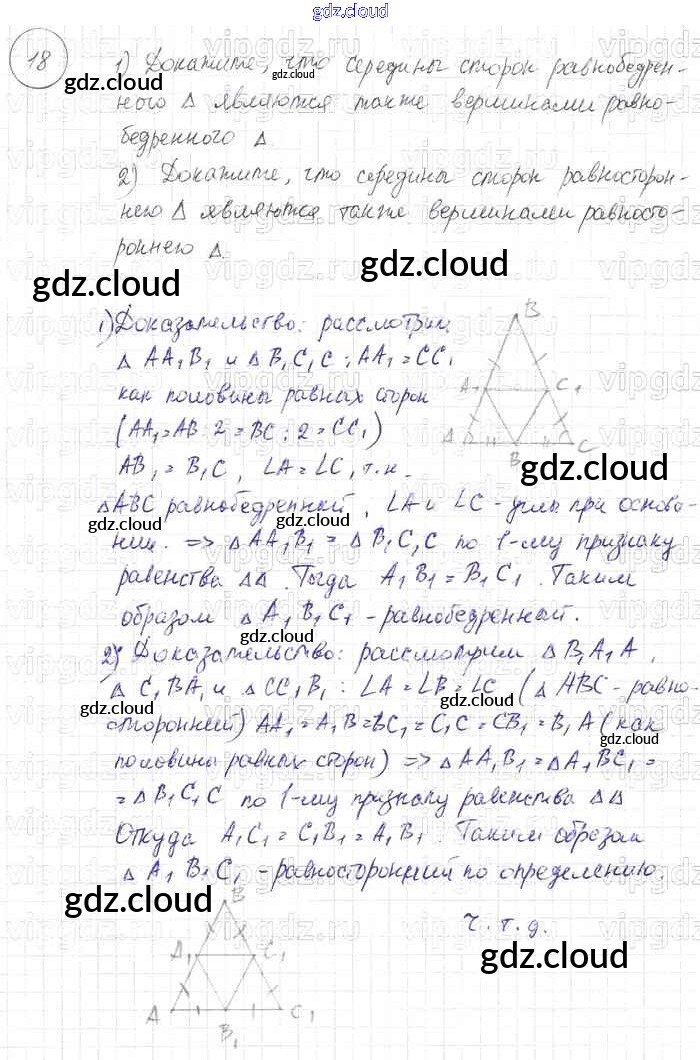 gdz.cloud
18
1) Докажите, что середины сторон равнобедрен-
ного Δ являются также вершинами равно-
бедренного Δ.
2) Докажите, что середины сторон равносторон-
него Δ являются также вершинами равносто-
роннего Δ.
gdz.cloud
gdz.cloud
gdz.cloud
gdz.cloud
1) Доказательство: рассмотрим
Δ AA₁B₁ и Δ B₁C₁C: AA₁ = CC₁
как половины равных сторон
(AA₁ = AB : 2 = BC : 2 = CC₁)
AB₁ = B₁C, ∠A = ∠C, т.к.
ΔABC равнобедренный, ∠A и ∠C - углы при основа-
нии. => Δ AA₁B₁ = Δ B₁C₁C по 1-му признаку
равенства ΔΔ. Тогда A₁B₁ = B₁C₁. Таким
образом Δ A₁B₁C₁ - равнобедренный.
B
A₁ C₁
A B₁ C
gdz.cloud
gdz.cloud
gdz.cloud
gdz.cloud
2) Доказательство: рассмотрим Δ B₁A₁A,
Δ C₁BA₁ и Δ CC₁B₁: ∠A = ∠B = ∠C (Δ ABC - равно-
сторонний) AA₁ = A₁B = BC₁ = C₁C = CB₁ = B₁A (как
половина равных сторон) => Δ AA₁B₁ = Δ A₁BC₁ =
= Δ B₁C₁C по 1-му признаку равенства ΔΔ
Откуда A₁C₁ = C₁B₁ = A₁B₁. Таким образом
Δ A₁B₁C₁ - равносторонний по определению.
ч. т. д.
gdz.cloud
gdz.cloud
gdz.cloud
gdz.cloud
gdz.cloud
B
A₁ C₁
A B₁ C₁